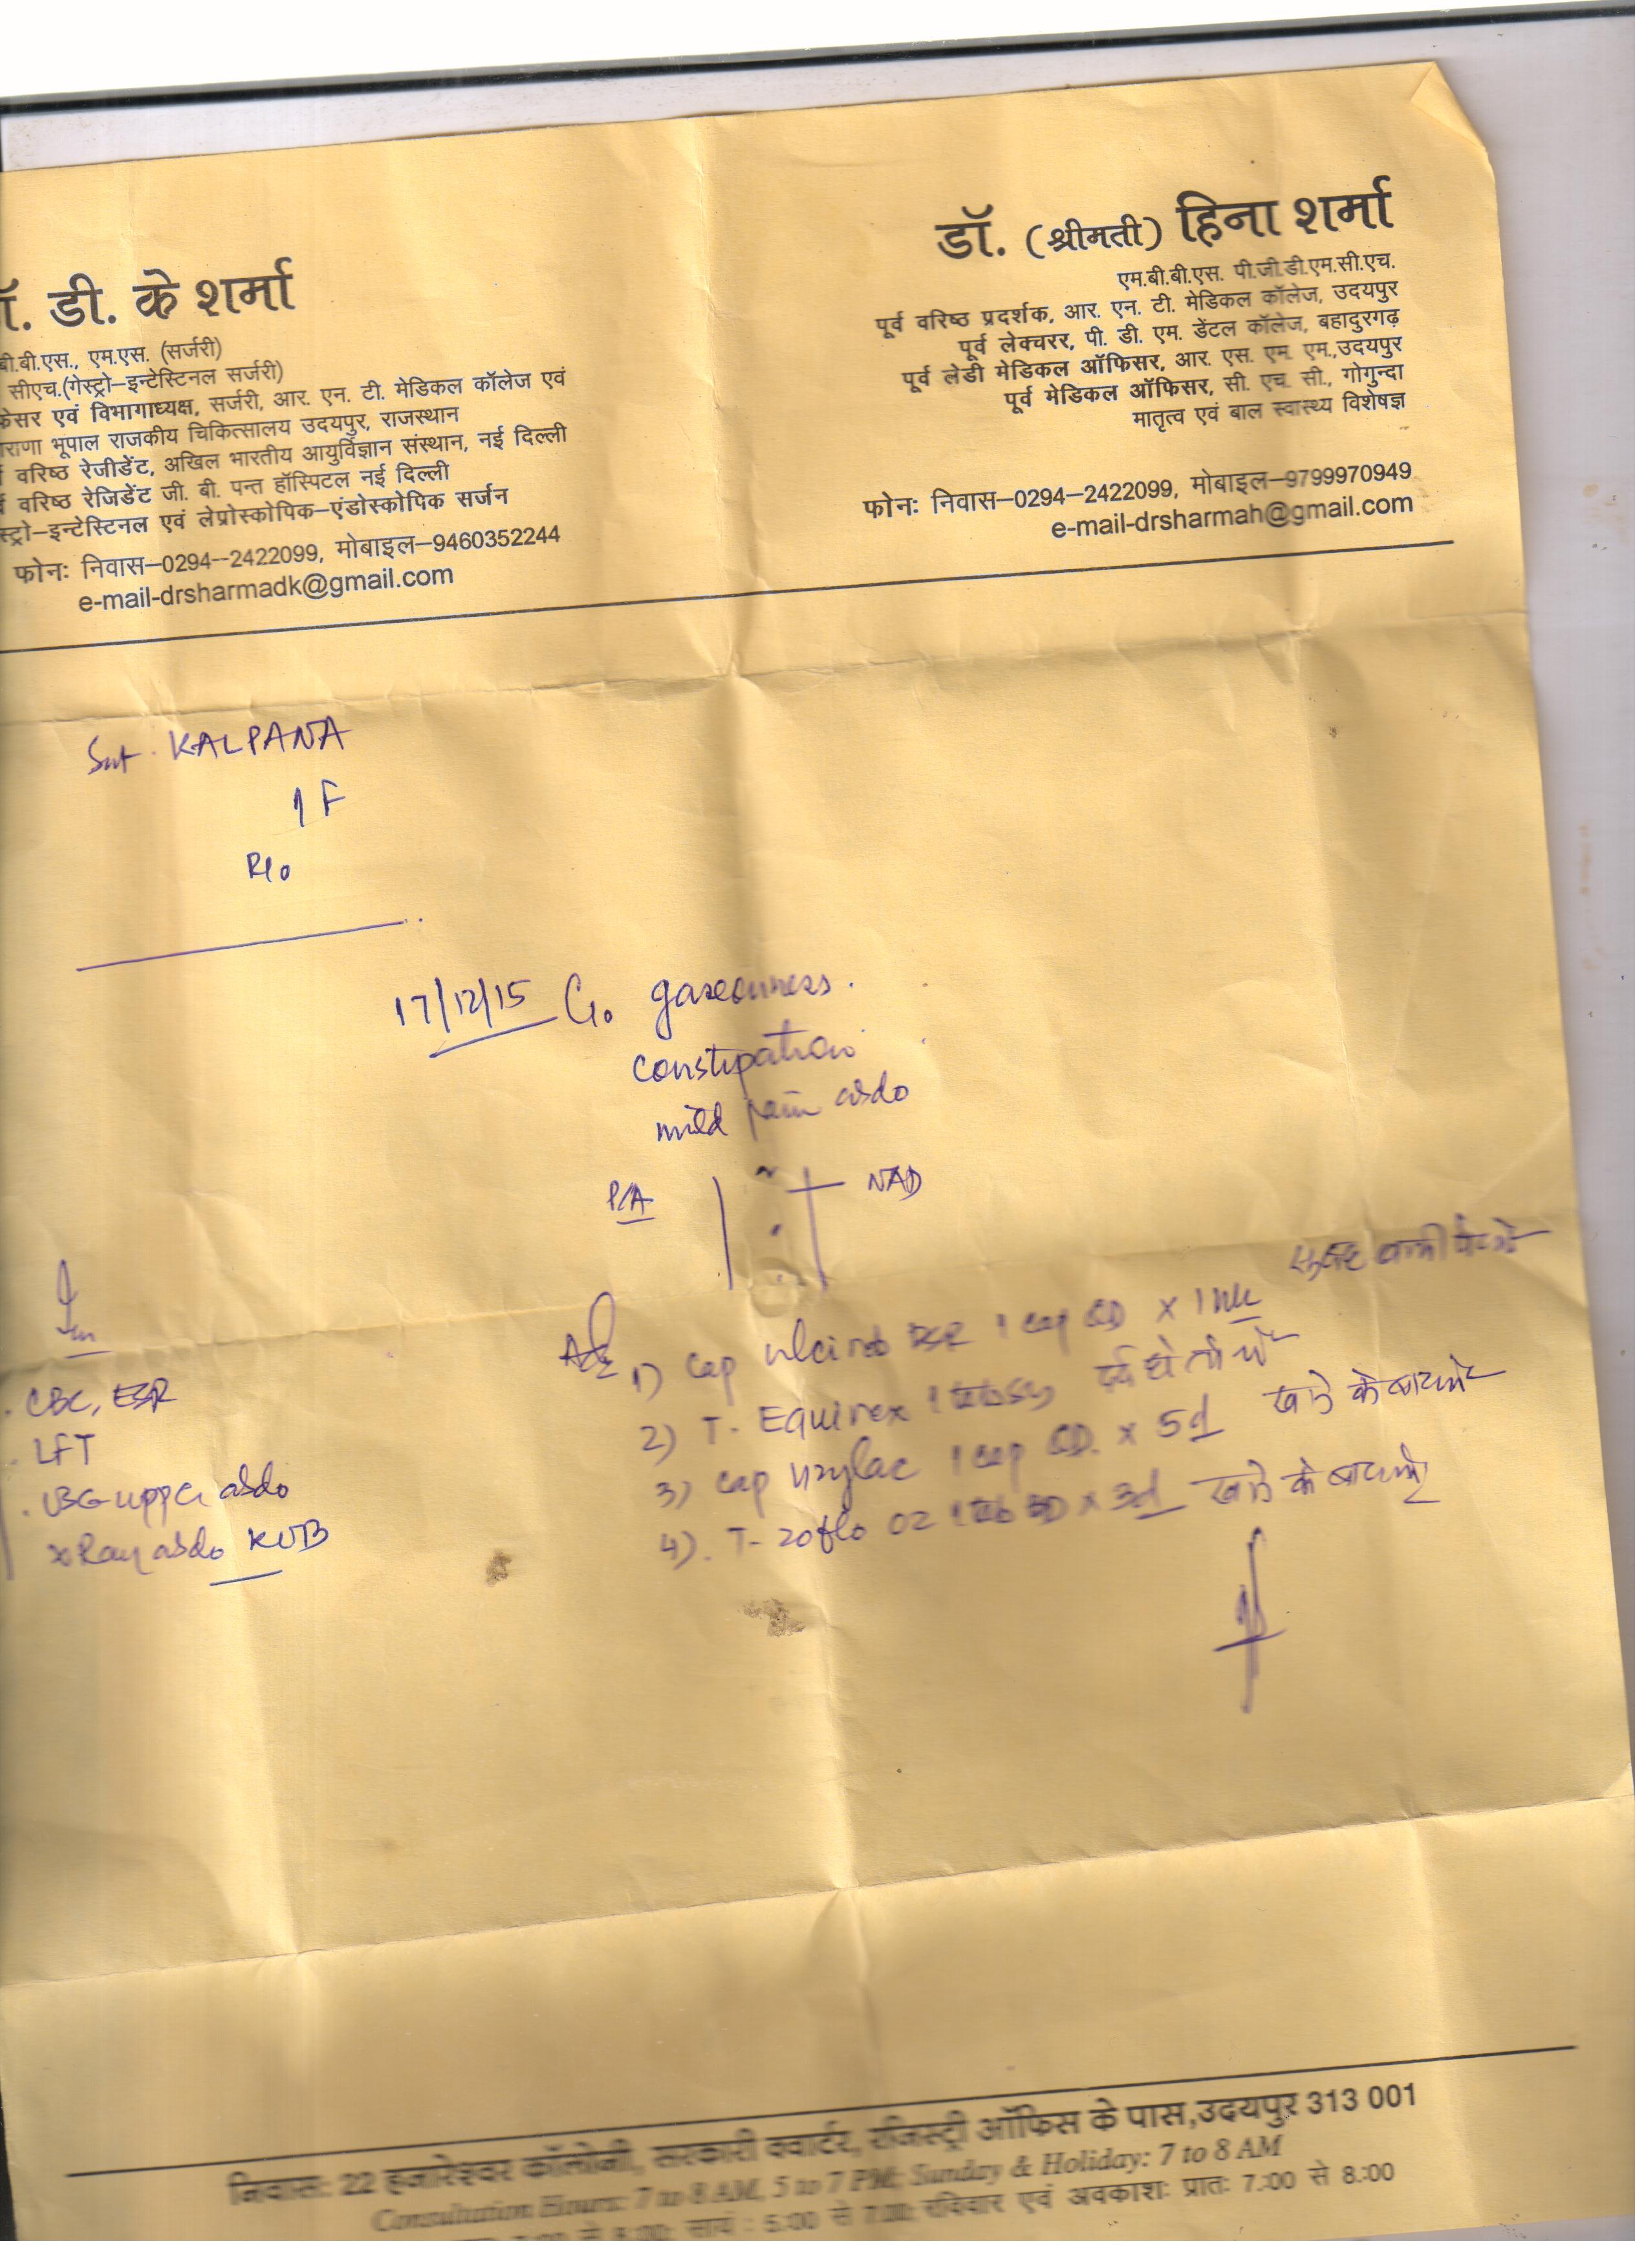 ॉ. डी. के शर्मा
बी.बी.एस., एम.एस. (सर्जरी)
सीएच.(गेस्ट्रो–इन्टेस्टिनल सर्जरी)
फेसर एवं विभागाध्यक्ष, सर्जरी, आर. एन. टी. मेडिकल कॉलेज एवं
ाराणा भूपाल राजकीय चिकित्सालय उदयपुर, राजस्थान
वरिष्ठ रेजीडेंट, अखिल भारतीय आयुर्विज्ञान संस्थान, नई दिल्ली
वरिष्ठ रेजिडेंट जी. बी. पन्त हॉस्पिटल नई दिल्ली
स्ट्रो–इन्टेस्टिनल एवं लेप्रोस्कोपिक–एंडोस्कोपिक सर्जन
फोनः निवास–0294–2422099, मोबाइल–9460352244
e-mail-drsharmadk@gmail.com
डॉ. (श्रीमती) हिना शर्मा
एम.बी.बी.एस. पी.जी.डी.एम.सी.एच.
पूर्व वरिष्ठ प्रदर्शक, आर. एन. टी. मेडिकल कॉलेज, उदयपुर
पूर्व लेक्चरर, पी. डी. एम. डेंटल कॉलेज, बहादुरगढ़
पूर्व लेडी मेडिकल ऑफिसर, आर. एस. एम. एम.,उदयपुर
पूर्व मेडिकल ऑफिसर, सी. एच. सी., गोगुन्दा
मातृत्व एवं बाल स्वास्थ्य विशेषज्ञ
फोनः निवास–0294–2422099, मोबाइल–9799970949
e-mail-drsharmah@gmail.com
Smt. KALPANA
/F
R/o
17/12/15 C/o gaseousness.
constipation
mild pain abdo
P/A NAD
CBC, ESR
LFT
USG upper abdo
x Ray abdo KUB
Adv
1) Cap DSR 1 cap OD x 1 wk सुबह खाली पेट
2) T. Equirex 1 tab दर्द हो तो
3) Cap 1 cap OD. x 5d खाने के बाद
4). T- zoflo OZ 1 tab BD x 3d खाने के बाद
निवासः 22 हजारेश्वर कॉलोनी, सरकारी क्वार्टर, रजिस्ट्री ऑफिस के पास,उदयपुर 313 001
Consultation Hours: 7 to 8 AM, 5 to 7 PM; Sunday & Holiday: 7 to 8 AM
से 8:00; सायं : 5:00 से 7:00; रविवार एवं अवकाशः प्रातः 7:00 से 8:00